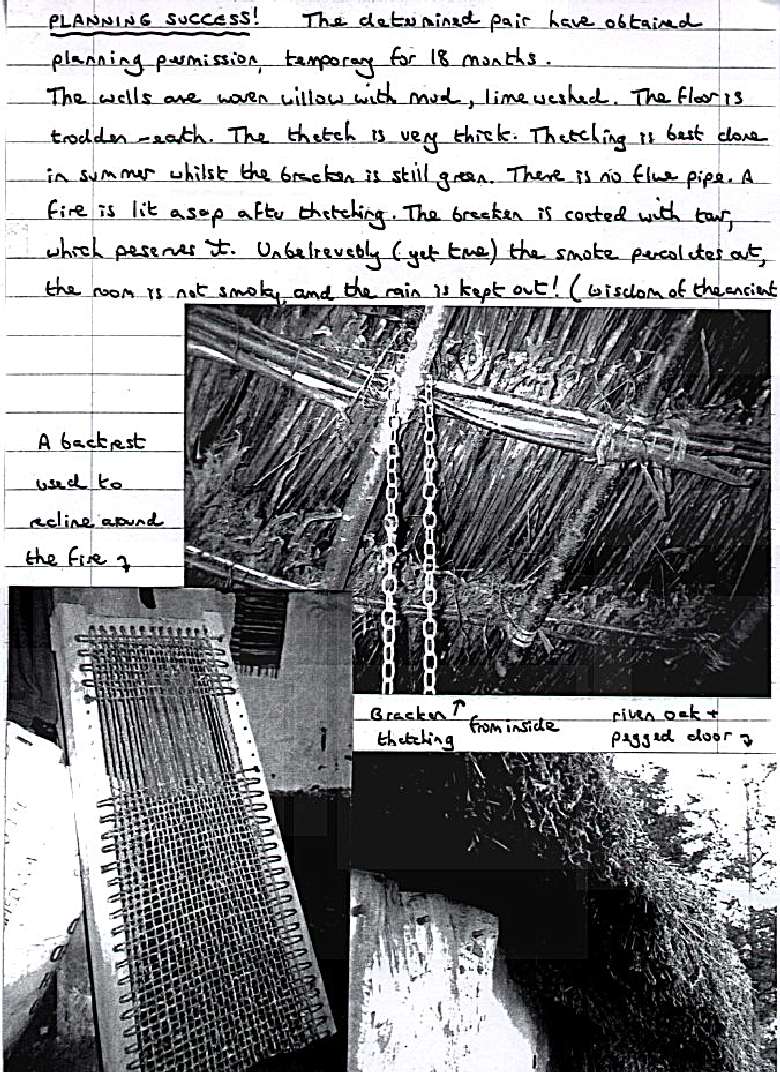 PLANNING SUCCESS! The determined pair have obtained
planning permission, temporary for 18 months.
The walls are woven willow with mud, limewashed. The floor is
trodden-earth. The thatch is very thick. Thatching is best done
in summer whilst the bracken is still green. There is no flue pipe. A
fire is lit asap after thatching. The bracken is coated with tar,
which peserves it. Unbelievebly (yet true) the smoke percolates out,
the room is not smoky and the rain is kept out! (Wisdom of the ancient
A backrest
used to
recline around
the fire
Bracken ↑ from inside
thatching
riven oak +
pegged door